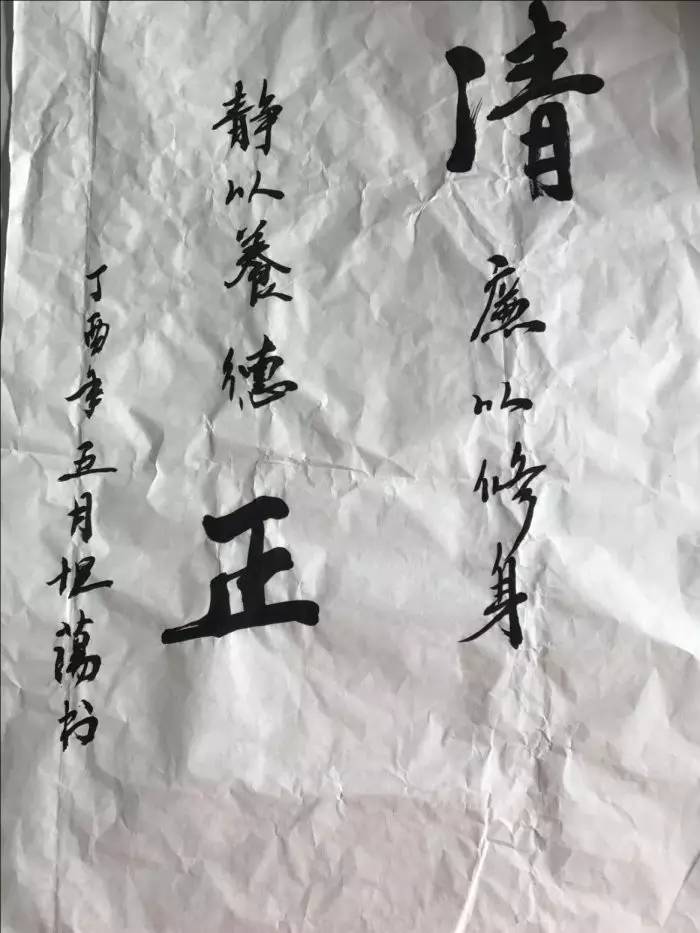 清
廉以修身
静以養德
正
丁酉年五月坦蕩书